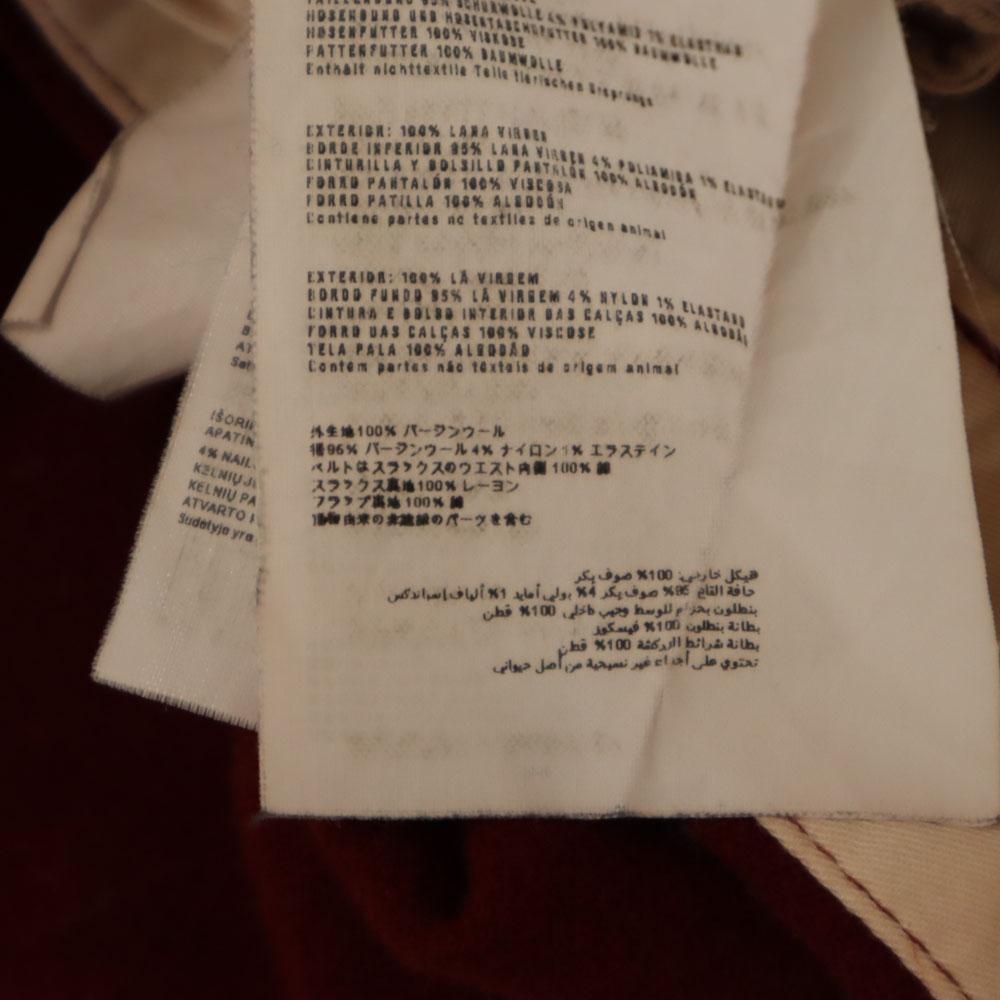 95% SCHURWOLLE 4% POLYAMID 1% ELASTHAN
HOSENBUND UND HOSENTASCHENFUTTER 100% BAUMWOLLE
HOSENFUTTER 100% VISKOSE
PATTENFUTTER 100% BAUMWOLLE
Enthält nichttextile Teile tierischen Ursprungs
EXTERIOR: 100% LANA VIRGEN
BORDE INFERIOR 95% LANA VIRGEN 4% POLIAMIDA 1% ELASTANO
CINTURILLA Y BOLSILLO PANTALÓN 100% ALGODÓN
FORRO PANTALÓN 100% VISCOSA
FORRO PATILLA 100% ALGODÓN
Contiene partes no textiles de origen animal
EXTERIOR: 100% LÃ VIRGEM
BORDO FUNDO 95% LÃ VIRGEM 4% NYLON 1% ELASTANO
CINTURA E BOLSO INTERIOR DAS CALÇAS 100% ALGODÃO
FORRO DAS CALÇAS 100% VISCOSE
TELA PALA 100% ALGODÃO
Contém partes não têxteis de origem animal
外生地100% バージンウール
裾95% バージンウール 4% ナイロン 1% エラステイン
ベルトはスラックスのウエスト内側 100% 綿
スラックス裏地100% レーヨン
フラップ裏地100% 綿
動物由来の非繊維のパーツを含む
هيكل خارجي: 100% صوف بكر
حافة القاع 95% صوف بكر 4% بولي أمايد 1% ألياف إسباندكس
بنطلون بحزام للوسط وجيب داخلي 100% قطن
بطانة بنطلون 100% فيسكوز
بطانة شرائط 100% قطن
تحتوي على أجزاء غير نسيجية من أصل حيواني
IŠORI
APATIN
4% NAIL
KELNIŲ
KELNIŲ PA
ATVARTO
Sudėtyje yra